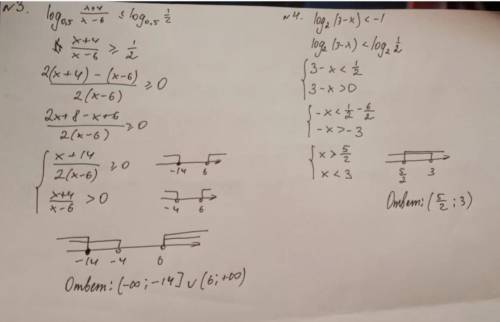 №3. log₀,₅ (x+4)/(x-6) ≤ log₀,₅ 1/2
(x+4)/(x-6) ≥ 1/2
(2(x+4) - (x-6))/(2(x-6)) ≥ 0
(2x+8-x+6)/(2(x-6)) ≥ 0
{ (x+14)/(2(x-6)) ≥ 0
-14 6
(x+4)/(x-6) > 0
-4 6
-14 -4 6
Ответ: (-∞; -14] ∪ (6; +∞)
№4. log₂(3-x) < -1
log₂(3-x) < log₂ 1/2
{ 3-x < 1/2
3-x > 0
{ -x < 1/2 - 6/2
-x > -3
{ x > 5/2
x < 3
5/2 3
Ответ: (5/2; 3)